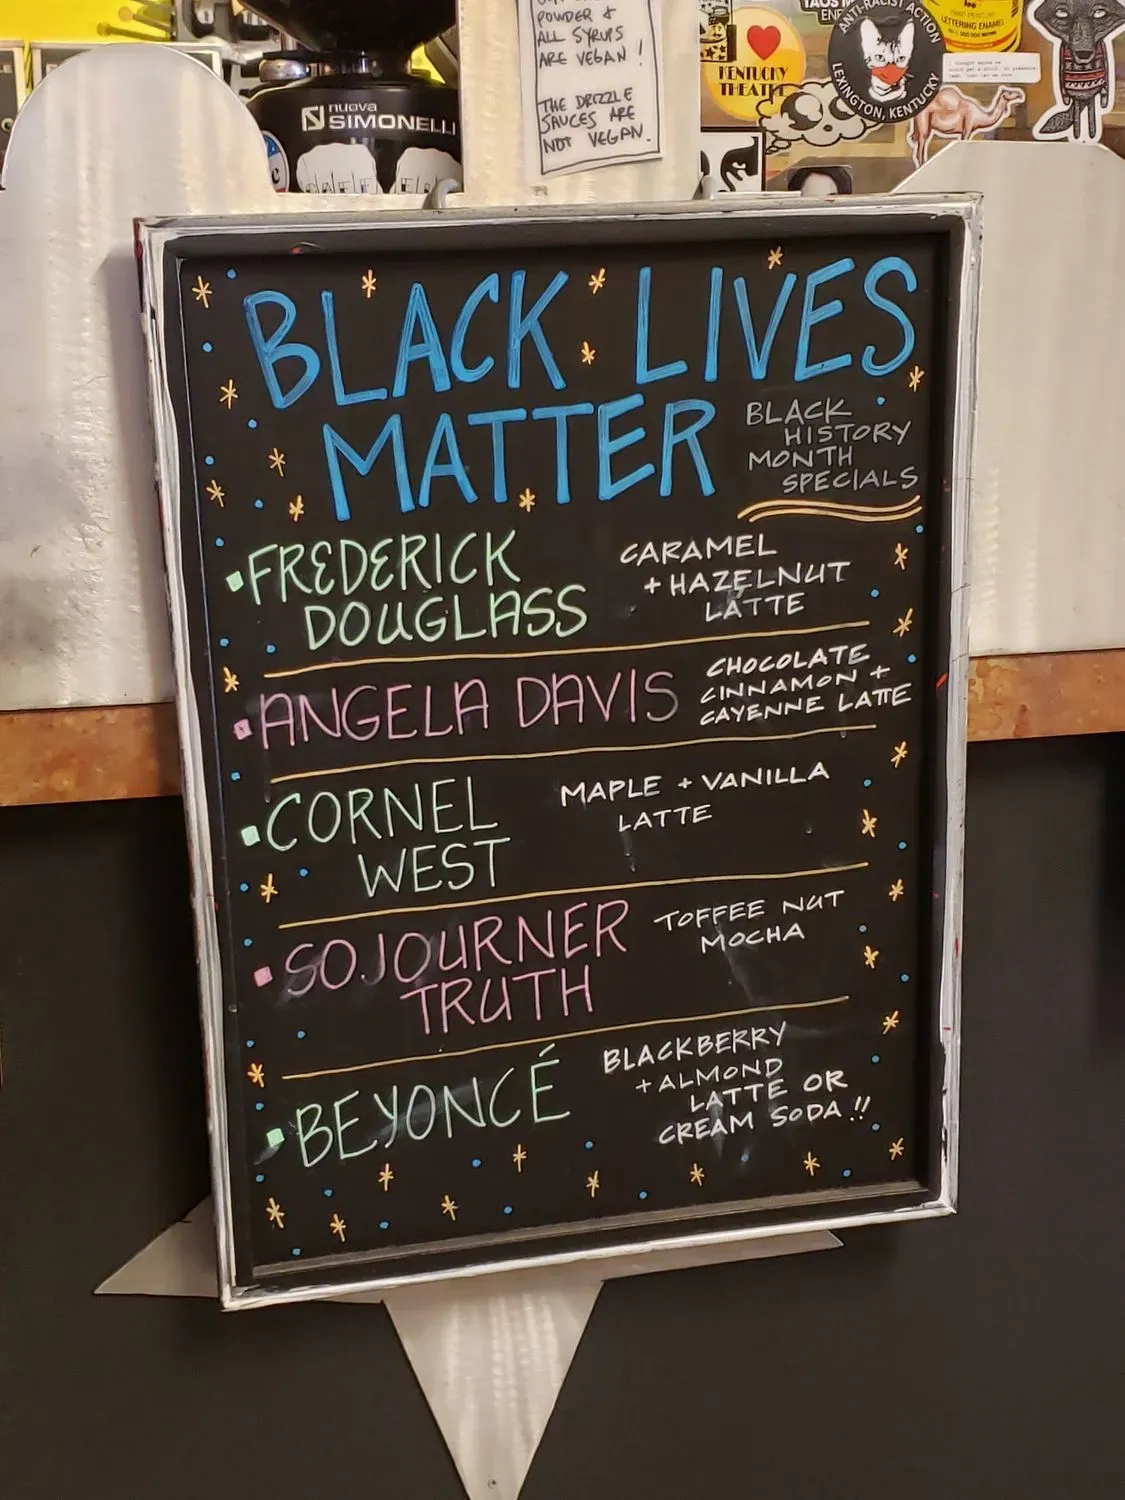 POWDER &
ALL SYRUPS
ARE VEGAN!
THE DRIZZLE
SAUCES ARE
NOT VEGAN.
nuova
SIMONELLI
KENTUCKY
THEATRE
ANTI-RACIST ACTION
LEXINGTON, KENTUCKY
LETTERING ENAMEL
BLACK LIVES
MATTER
BLACK
HISTORY
MONTH
SPECIALS
FREDERICK
DOUGLASS
CARAMEL
+ HAZELNUT
LATTE
ANGELA DAVIS
CHOCOLATE
CINNAMON +
CAYENNE LATTE
CORNEL
WEST
MAPLE + VANILLA
LATTE
SOJOURNER
TRUTH
TOFFEE NUT
MOCHA
BEYONCÉ
BLACKBERRY
+ ALMOND
LATTE OR
CREAM SODA!!